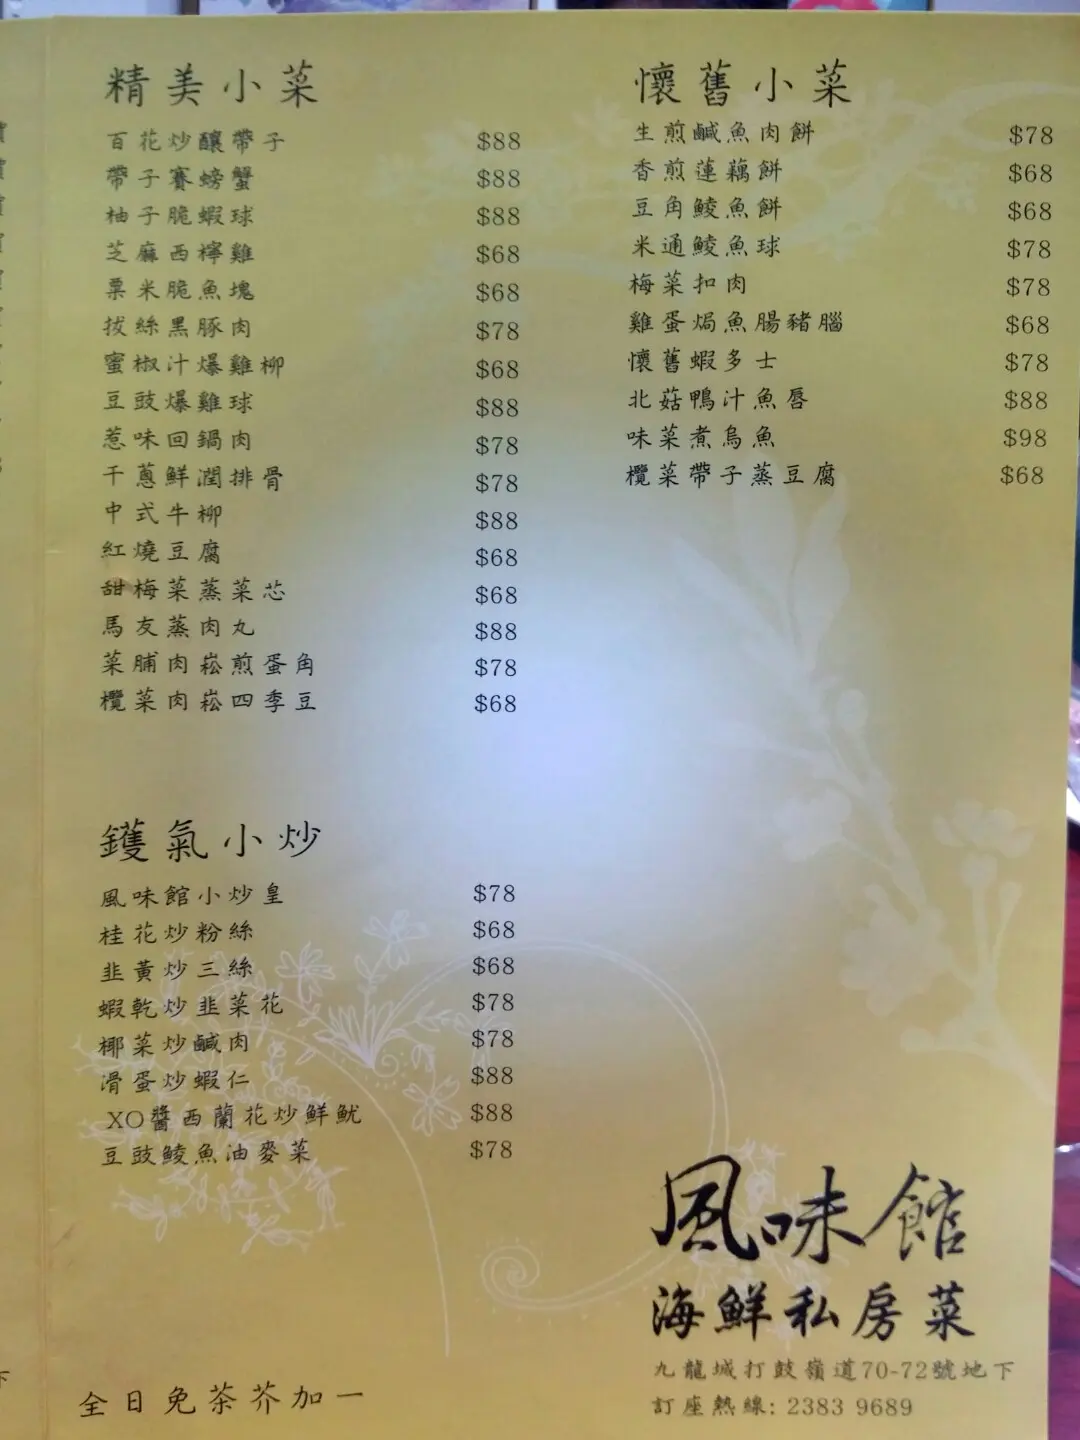 精美小菜
百花炒釀帶子 $88
帶子賽螃蟹 $88
柚子脆蝦球 $88
芝麻西檸雞 $68
粟米脆魚塊 $68
拔絲黑豚肉 $78
蜜椒汁爆雞柳 $68
豆豉爆雞球 $88
惹味回鍋肉 $78
干蔥鮮潤排骨 $78
中式牛柳 $88
紅燒豆腐 $68
甜梅菜蒸菜芯 $68
馬友蒸肉丸 $88
菜脯肉崧煎蛋角 $78
欖菜肉崧四季豆 $68
鑊氣小炒
風味館小炒皇 $78
桂花炒粉絲 $68
韭黃炒三絲 $68
蝦乾炒韭菜花 $78
椰菜炒鹹肉 $78
滑蛋炒蝦仁 $88
XO醬西蘭花炒鮮魷 $88
豆豉鯪魚油麥菜 $78
全日免茶芥加一
懷舊小菜
生煎鹹魚肉餅 $78
香煎蓮藕餅 $68
豆角鯪魚餅 $68
米通鯪魚球 $78
梅菜扣肉 $78
雞蛋焗魚腸豬腦 $68
懷舊蝦多士 $78
北菇鴨汁魚唇 $88
味菜煮烏魚 $98
欖菜帶子蒸豆腐 $68
風味館
海鮮私房菜
九龍城打鼓嶺道70-72號地下
訂座熱線: 2383 9689